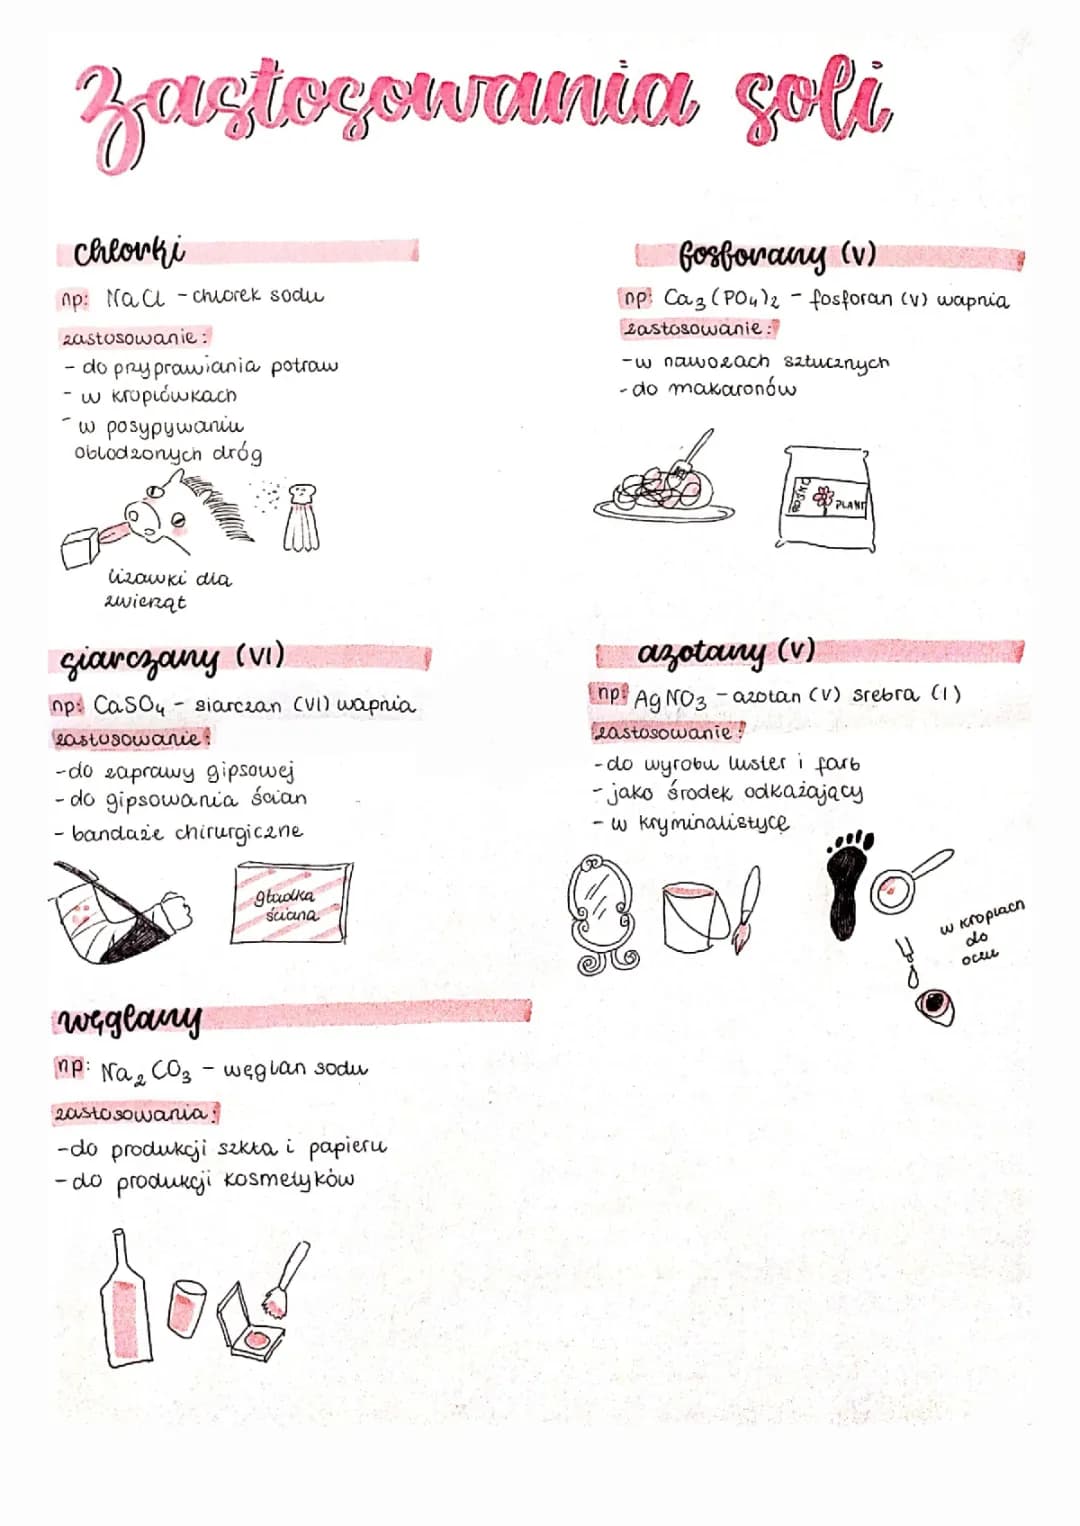 zastosowania soli
chlorki
np: NaCl - chlorek sodu
zastosowanie:
- do przyprawiania potraw
- w kroplówkach
- w posypywaniu
oblodzonych dróg
lizawki dla
zwierząt
siarczany (VI)
np: CaSO₄ - siarczan (VI) wapnia
zastosowanie:
- do zaprawy gipsowej
- do gipsowania ścian
- bandaże chirurgiczne
gładka
ściana
węglany
np: Na₂CO₃ - węglan sodu
zastosowania:
- do produkcji szkła i papieru
- do produkcji kosmetyków
fosforany (V)
np: Ca₃(PO₄)₂ - fosforan (V) wapnia
zastosowanie:
- w nawozach sztucznych
- do makaronów
PLANT
azotany (V)
np: AgNO₃ - azotan (V) srebra (I)
zastosowanie:
- do wyrobu luster i farb
- jako środek odkażający
- w kryminalistycę
w kroplach
do
oczu